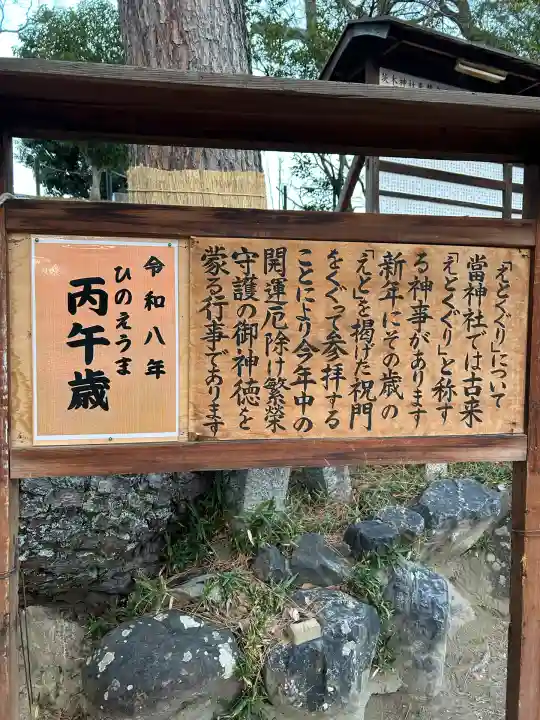 「えとくぐり」について
當神社では古来
「えとくぐり」と称す
る神事があります
新年にその歳の
「えと」を掲げた祝門
をくぐって参拝する
ことにより今年中の
開運厄除け繁榮
守護の御神徳を
蒙る行事であります
令和八年
ひのえうま
丙午歳